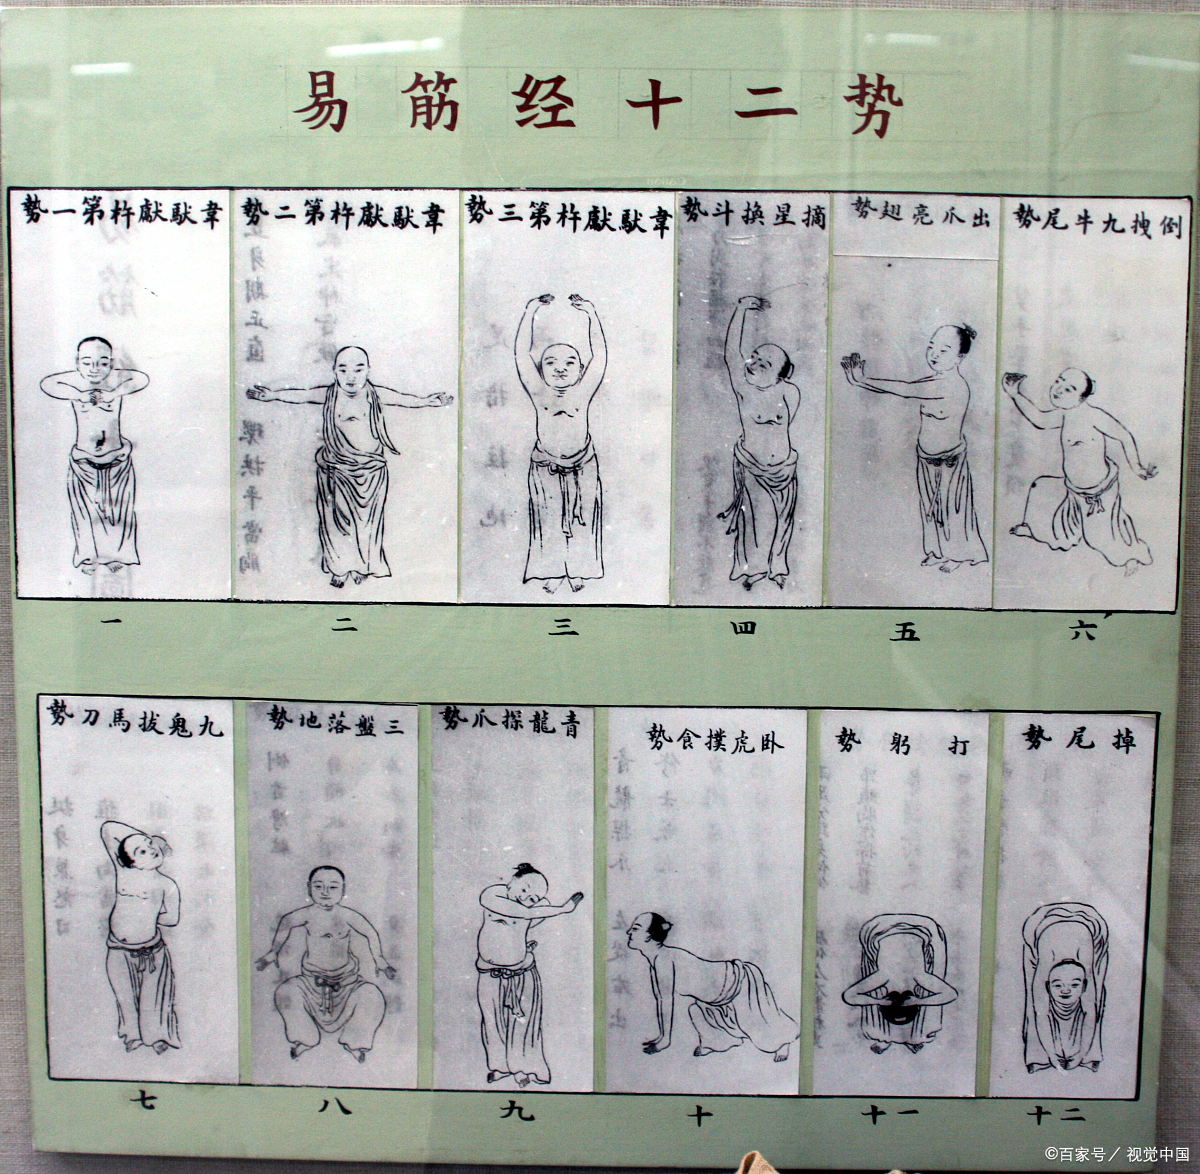 易筋经十二势
韋馱獻杵第一勢
韋馱獻杵第二勢
韋馱獻杵第三勢
摘星換斗勢
出爪亮翅勢
倒拽九牛尾勢
一
二
三
四
五
六
九鬼拔馬刀勢
三盤落地勢
青龍探爪勢
卧虎撲食勢
打躬勢
掉尾勢
七
八
九
十
十一
十二
©百家号／视觉中国